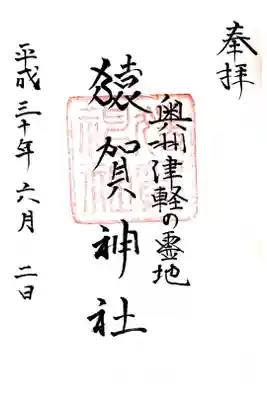 奉拝
奥州津軽の霊地
猿賀神社
平成三十年六月二日